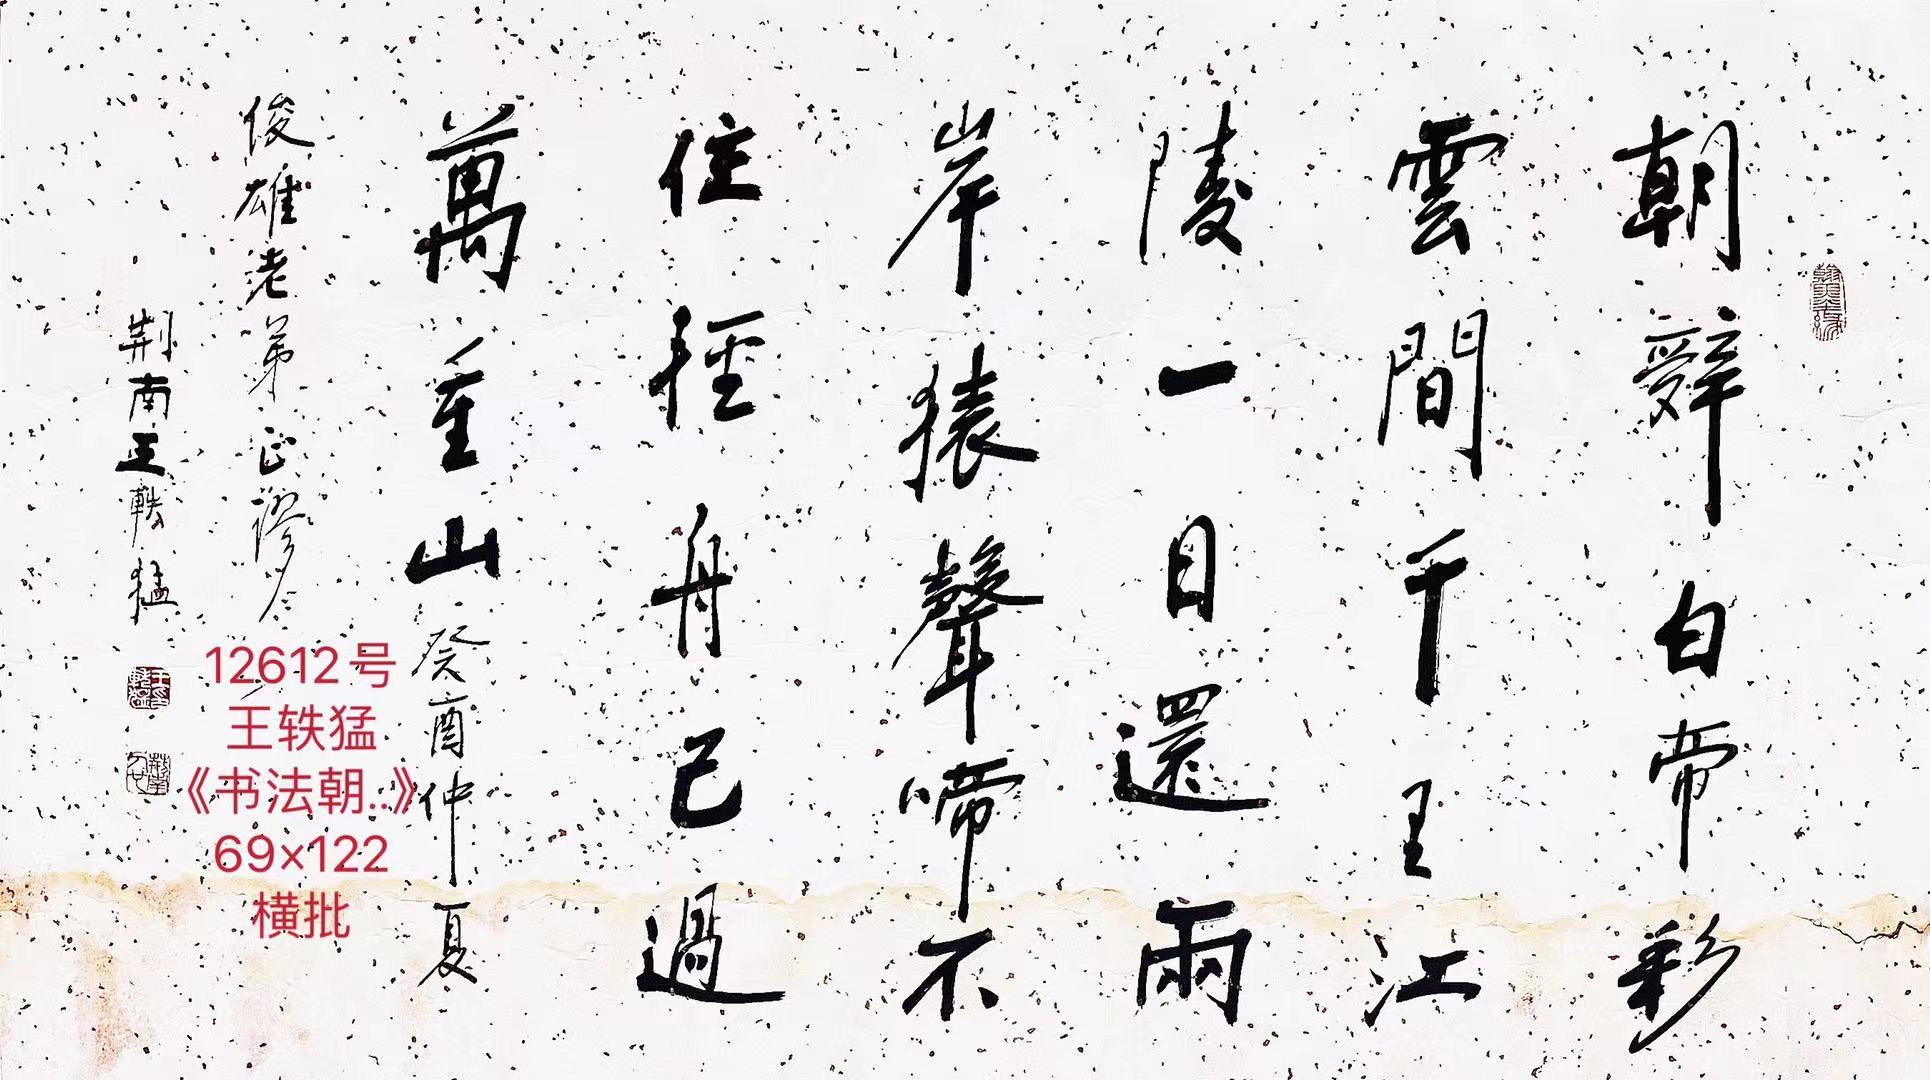 朝辭白帝彩
雲間千里江
陵一日還兩
岸猿聲啼不
住輕舟已過
萬重山癸酉仲夏
俊雄老弟正謬
荆南王軼猛
12612号
王轶猛
《书法朝..》
69×122
横批